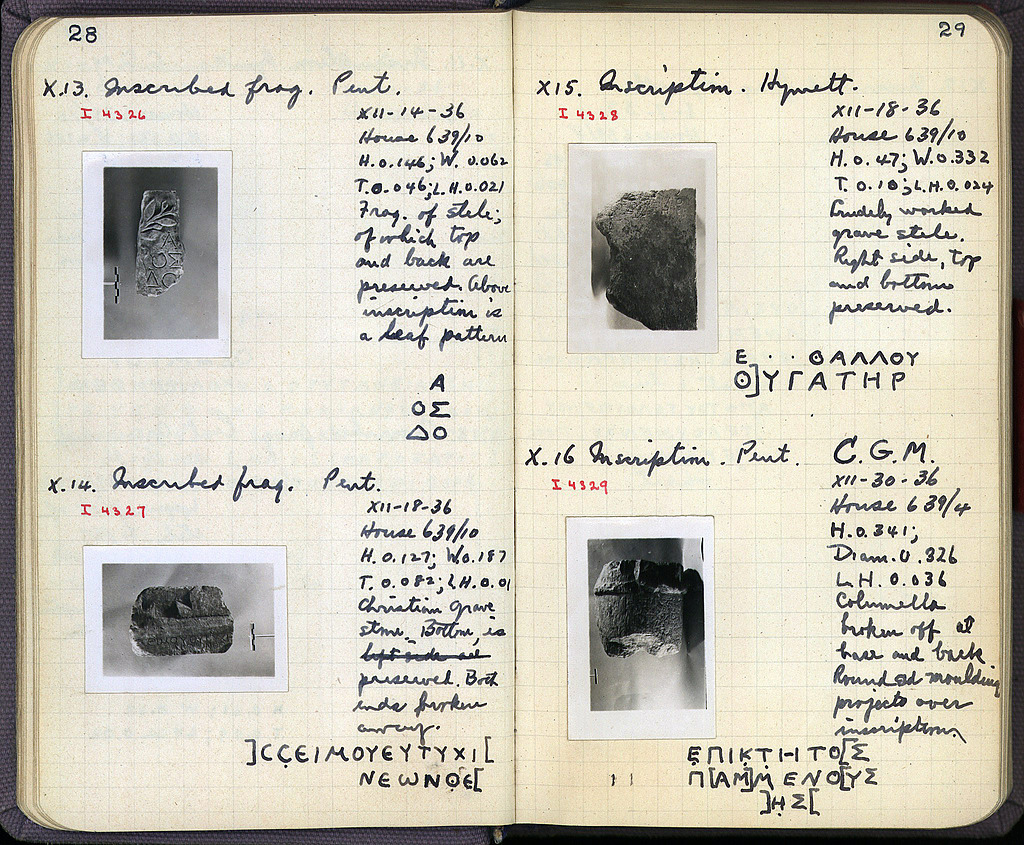 28
X.13. Inscribed frag. Pent.
I 4326
XII-14-36
House 639/10
H. 0.146; W. 0.062
T. 0.046; L.H. 0.021
Frag. of stele;
of which top
and back are
preserved. Above
inscription is
a leaf pattern
Α
ΟΣ
ΔΟ
X.14. Inscribed frag. Pent.
I 4327
XII-18-36
House 639/10
H. 0.127; W. 0.187
T. 0.082; L.H. 0.01
Christian grave
stone. Bottom, is
left side are
preserved. Both
ends broken
away.
]ϹϹΕΙΜΟΥΕΥΤΥΧΙ[
ΝΕωΝΘΕ[
29
X15. Inscription. Hymett.
I 4328
XII-18-36
House 639/10
H. 0.47; W. 0.332
T. 0.10; L.H. 0.024
Crudely worked
grave stele.
Right side, top
and bottom
preserved.
Ε · · ΘΑΛΛΟΥ
Θ]ΥΓΑΤΗΡ
X.16 Inscription. Pent. C.G.M.
I 4329
XII-30-36
House 639/4
H. 0.341;
Diam. 0.326
L.H. 0.036
Columella
broken off at
base and back.
Rounded moulding
projects over
inscription.
ΕΠΙΚΤΗΤΟ[Σ
Π[ΑΜ]ΜΕΝΟ[ΥΣ
]ΗΣ[